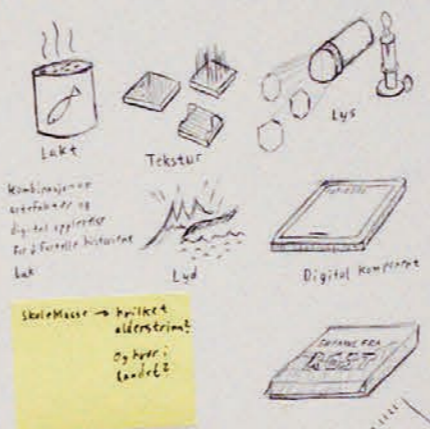 Lukt
Tekstur
Lys
Kombinasjon av
artefakter og
digital opplevelse
for å fortelle historiene
bak
Lyd
Digital komponent
Skoleklasse → hvilket
alderstrinn?
Og hvor i
landet?
FRA